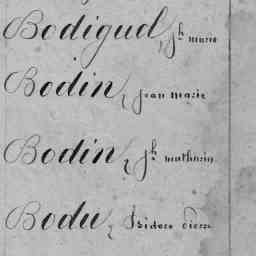 Bodiguel, Jh marie
Bodin, jean marie
Bodin, Jh mathurin
Bodu, Isidore pierre